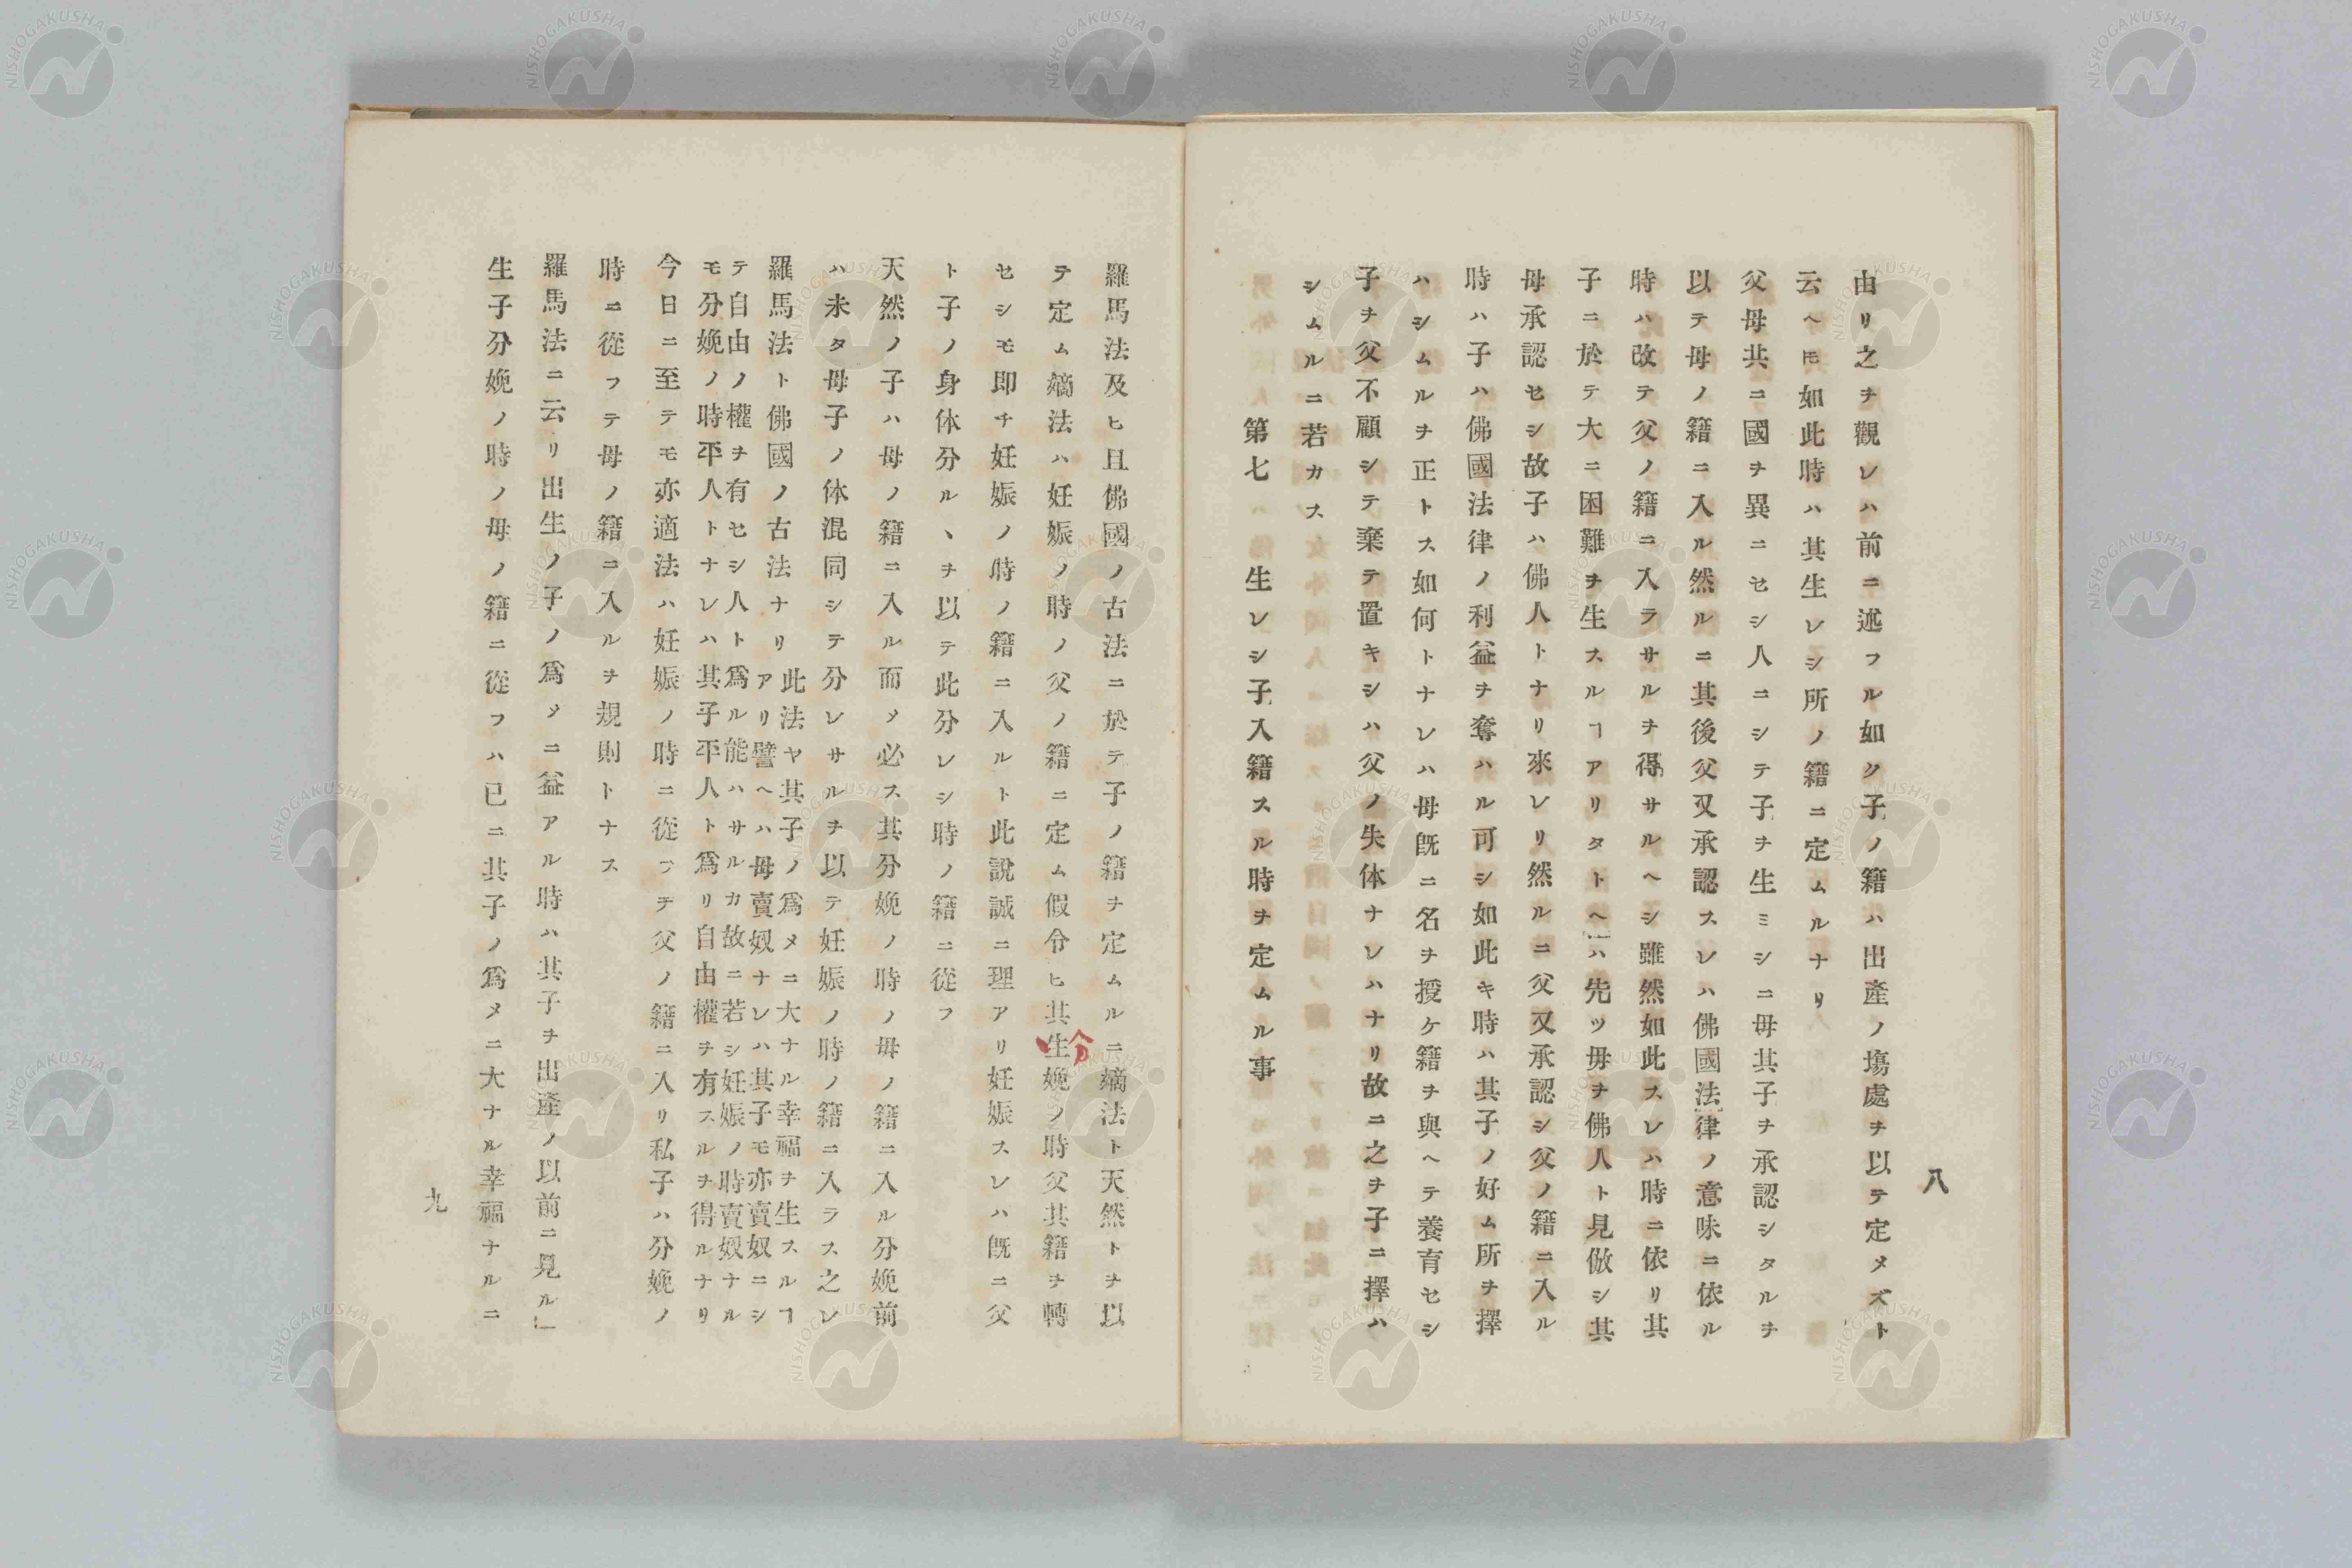 八
由リ之ヲ觀レハ前ニ述フル如ク子ノ籍ハ出產ノ塲處ヲ以テ定メズト
云ヘ𪜈如此時ハ其生レシ所ノ籍ニ定ムルナリ
父母共ニ國ヲ異ニセシ人ニシテ子ヲ生ミシニ母其子ヲ承認シタルヲ
以テ母ノ籍ニ入ル然ルニ其後父又承認スレハ佛國法律ノ意味ニ依ル
時ハ改テ父ノ籍ニ入ラサルヲ得サルヘシ雖然如此スレハ時ニ依リ其
子ニ於テ大ニ困難ヲ生スルヿアリタトヘハ先ツ母ヲ佛人ト見倣シ其
母承認セシ故子ハ佛人トナリ來レリ然ルニ父又承認シ父ノ籍ニ入ル
時ハ子ハ佛國法律ノ利益ヲ奪ハル可シ如此キ時ハ其子ノ好ム所ヲ擇
ハシムルヲ正トス如何トナレハ母既ニ名ヲ授ケ籍ヲ與ヘテ養育セシ
子ヲ父不顧シテ棄テ置キシハ父ノ失体ナレハナリ故ニ之ヲ子ニ擇ハ
シムルニ若カス
第七　生レシ子入籍スル時ヲ定ムル事
羅馬法及ヒ且佛國ノ古法ニ於テ子ノ籍ヲ定ムルニ嫡法ト天然トヲ以
テ定ム嫡法ハ妊娠ノ時ノ父ノ籍ニ定ム假令ヒ其生娩ノ時父其籍ヲ轉
分
セシモ即チ妊娠ノ時ノ籍ニ入ルト此說誠ニ理アリ妊娠スレハ既ニ父
ト子ノ身体分ルヽヲ以テ此分レシ時ノ籍ニ從フ
天然ノ子ハ母ノ籍ニ入ル而メ必ス其分娩ノ時ノ母ノ籍ニ入ル分娩前
ハ未タ母子ノ体混同シテ分レサルヲ以テ妊娠ノ時ノ籍ニ入ラス之レ
羅馬法ト佛國ノ古法ナリ
此法ヤ其子ノ爲メニ大ナル幸福ヲ生スルヿ
アリ譬ヘハ母賣奴ナレハ其子モ亦賣奴ニシ
テ自由ノ權ヲ有セシ人ト爲ル能ハサルカ故ニ若シ妊娠ノ時賣奴ナル
モ分娩ノ時平人トナレハ其子平人ト爲リ自由權ヲ有スルヲ得ルナリ
今日ニ至テモ亦適法ハ妊娠ノ時ニ從フヲ父ノ籍ニ入リ私子ハ分娩ノ
時ニ從フテ母ノ籍ニ入ルヲ規則トナス
羅馬法ニ云リ出生ノ子ノ爲メニ益アル時ハ其子ヲ出產ノ以前ニ見ル」
生子分娩ノ時ノ母ノ籍ニ從フハ已ニ其子ノ爲メニ大ナル幸福ナルニ
九
NISHOGAKUSHA